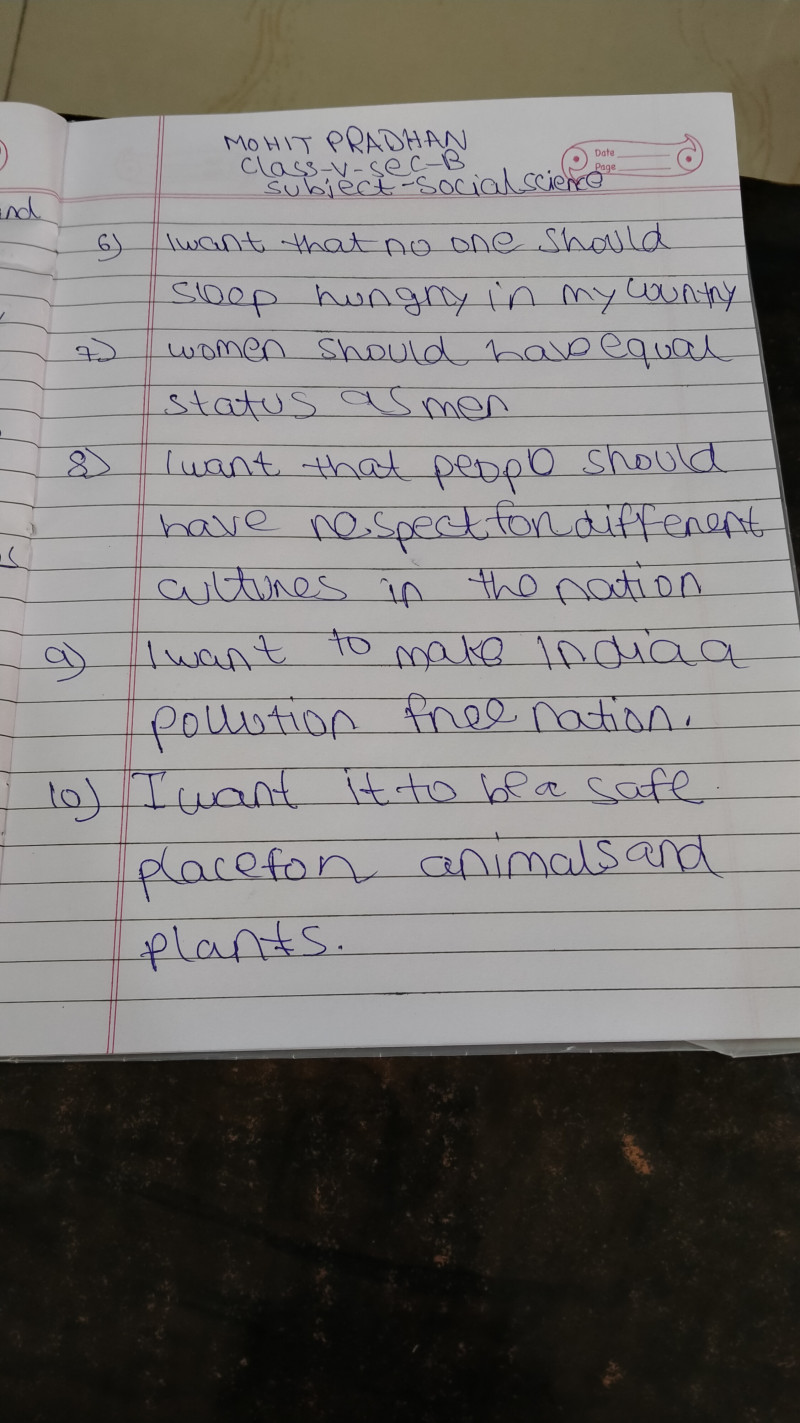 MOHIT PRADHAN
Class-V-sec-B
Subject-Social science
Date
Page
6) I want that no one should
sleep hungry in my country
7) women should have equal
status as men
8) I want that people should
have respect for different
cultures in the nation
9) I want to make India a
pollution free nation.
10) I want it to be a safe
place for animals and
plants.